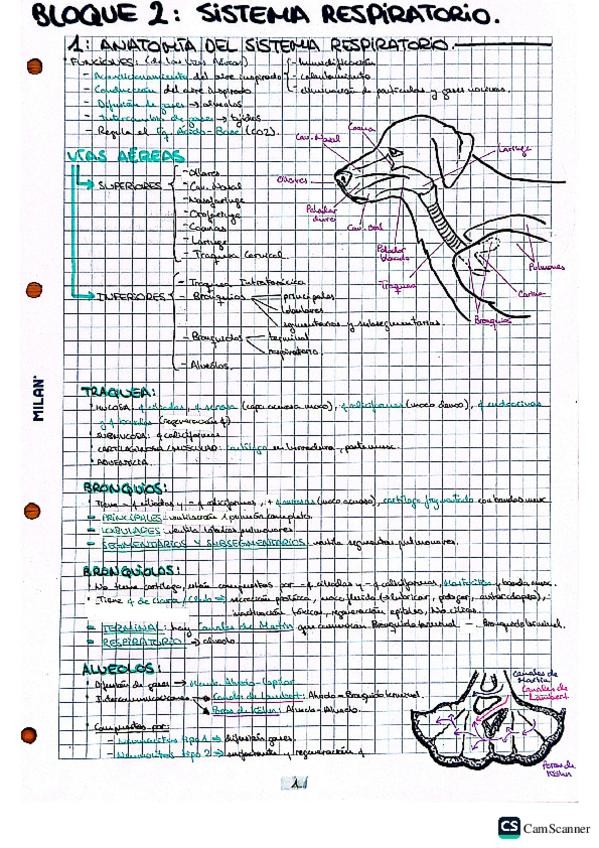 BLOQUE 2: SISTEMA RESPIRATORIO.
1: ANATOMÍA DEL SISTEMA RESPIRATORIO.
· FUNCIONES: (de las vías Aéreas)
- Humidificación
- Acondicionamiento del aire inspirado
- calentamiento
- Conducción del aire inspirado
- eliminación de partículas y gases nocivos.
- Difusión de gases → alveolos
- Intercambio de gases → tejidos
- Regula el Eq. Ácido-Base (CO2).
VÍAS AÉREAS
SUPERIORES
- Ollares
- Cav. Nasal
- Nasofaringe
- Orofaringe
- Coanas
- Laringe
- Traquea Cervical.
INFERIORES
- Traquea Intratorácica
- Bronquios
principales
lobulares
segmentarios y subsegmentarios.
- Bronquiolos
terminal
respiratorio.
- Alveolos.
Coana
Cav. Nasal
Laringe
Ollares
Paladar duro
Cav. Oral
Paladar blando
Traquea
Pulmones
Carina
Bronquios
TRAQUEA:
· MUCOSA:
(regeneración)
· SUBMUCOSA: caliciformes
· CARTILAGINOSA/MUSCULAR: cartílago en herradura, parte musc.
· ADVENTICIA.
BRONQUIOS:
· Tiene - ciliadas y - caliciformes, + serosas (moco acuoso), cartílago fragmentado con bandas musc
- PRINCIPALES: ventilación 1 pulmón completo.
- LOBULARES: ventila lóbulos pulmonares.
- SEGMENTARIOS Y SUBSEGMENTARIOS: ventila segmentos pulmonares.
BRONQUIOLOS:
· No tiene cartílago, están compuestos por - ciliadas y - caliciformes, Mastocitos y banda musc.
· Tiene de Clara / Club → secreción proteica, moco fluido
regeneración epitelio, No cilios.
- TERMINAL: hay Canales de Martin que comunican Bronquiolo terminal - Bronquiolo terminal.
- RESPIRATORIO → alveolo.
ALVEOLOS:
· Difusión de gases → Memb. Alveolo-Capilar
· Intercomunicaciones
Canales de Lambert: Alveolo - Bronquiolo terminal.
Poros de Köhn: Alveolo - Alveolo.
· Compuestos por:
- Neumocitos tipo 1 → difusión gases.
- Neumocitos tipo 2 → surfactante y regeneración
Canales de Martin
Canales de Lambert
Poros de Köhn
1
MILAN
CS CamScanner